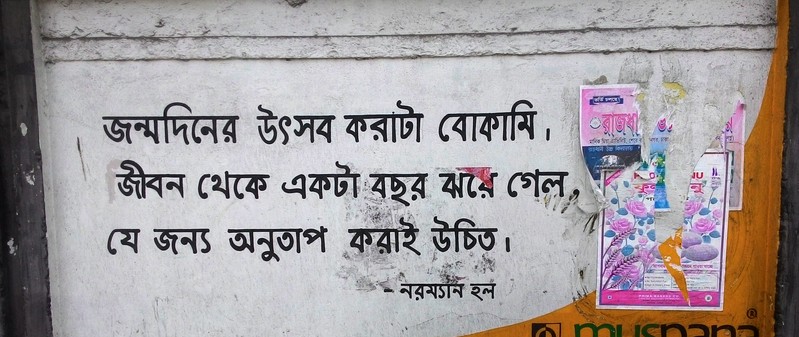 জন্মদিনের উৎসব করাটা বোকামি।
জীবন থেকে একটা বছর ঝরে গেল,
যে জন্য অনুতাপ করাই উচিত।
- নরম্যান হল
ভর্তি চলছে!